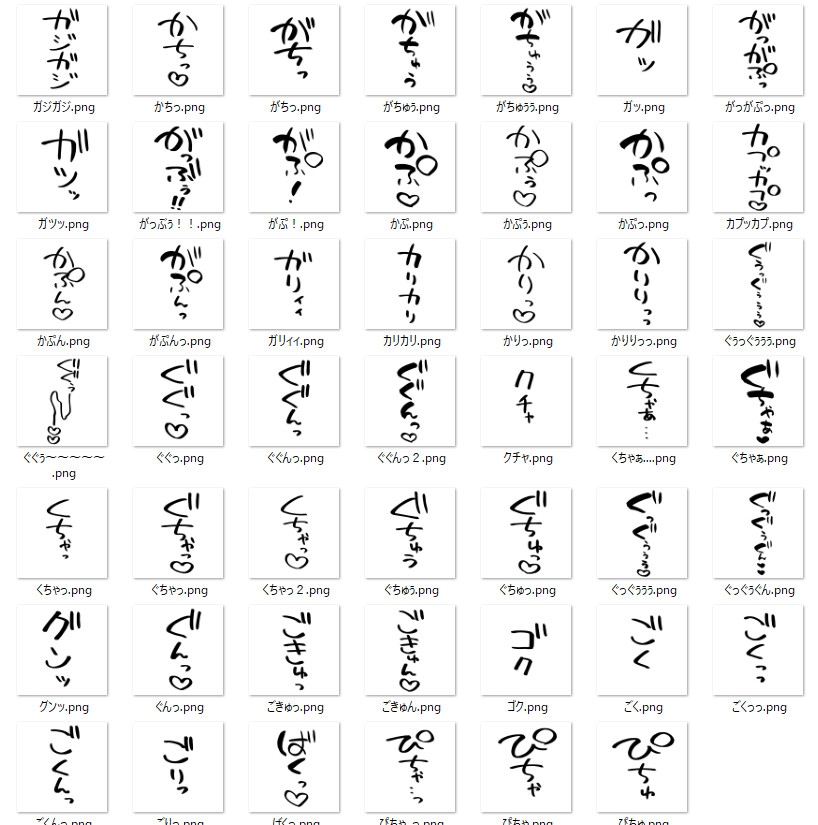 ガジガジ かちっ♡ がちっ がちゅう がちゅうぅ♡ ガッ がっがぷっ
ガジガジ.png かちっ.png がちっ.png がちゅぅ.png がちゅぅぅ.png ガッ.png がっがぷっ.png
ガツッ がっぷぅ!! がぷ! かぷ♡ かぷぅ♡ かぷっ カプッカプ♡
ガツッ.png がっぷぅ！！.png がぷ！.png かぷ.png かぷぅ.png かぷっ.png カプッカプ.png
かぷん♡ がぷんっ ガリィィ カリカリ かりっ♡ かりりっっ ぐぅっぐぅぅぅ♡
かぷん.png がぷんっ.png ガリィィ.png カリカリ.png かりっ.png かりりっっ.png ぐぅっぐぅぅぅ.png
ぐぐぅ〜♡♡ ぐぐっ♡ ぐぐんっ ぐぐんっ♡ クチャ くちゃぁ… ぐちゃぁ♥
ぐぐぅ～～～～～ ぐぐっ.png ぐぐんっ.png ぐぐんっ２.png クチャ.png くちゃぁ....png ぐちゃぁ.png
.png
くちゃっ ぐちゃっ♡ くちゃっ♡ ぐちゅう ぐちゅっ♡ ぐっぐぅぅぅ♡ ぐっぐぅぐん♥
くちゃっ.png ぐちゃっ.png くちゃっ２.png ぐちゅぅ.png ぐちゅっ.png ぐっぐぅぅぅ.png ぐっぐぅぐん.png
グンッ ぐんっ♡ ごきゅっ ごきゅん♡ ゴク ごく ごくっっ
グンッ.png ぐんっ.png ごきゅっ.png ごきゅん.png ゴク.png ごく.png ごくっっ.png
ごくんっ ごりっ ばくっ♡ ぴちゃ…っ ぴちゃ ぴちゅ
ごくんっ.png ごりっ.png ばくっ.png ぴちゃ.png ぴちゅ.png